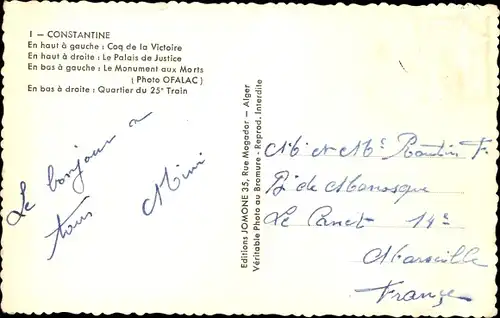 1 — CONSTANTINE
En haut à gauche : Coq de la Victoire
En haut à droite : Le Palais de Justice
En bas à gauche : Le Monument aux Morts
( Photo OFALAC )
En bas à droite : Quartier du 25e Train
Le bonjour a
tous
Mimi
Editions JOMONE 35, Rue Mogador — Alger
Véritable Photo au Bromure - Reprod. Interdite
Mr et Me F.
Bd de Manosque
Le Canet 14e
Marseille
France